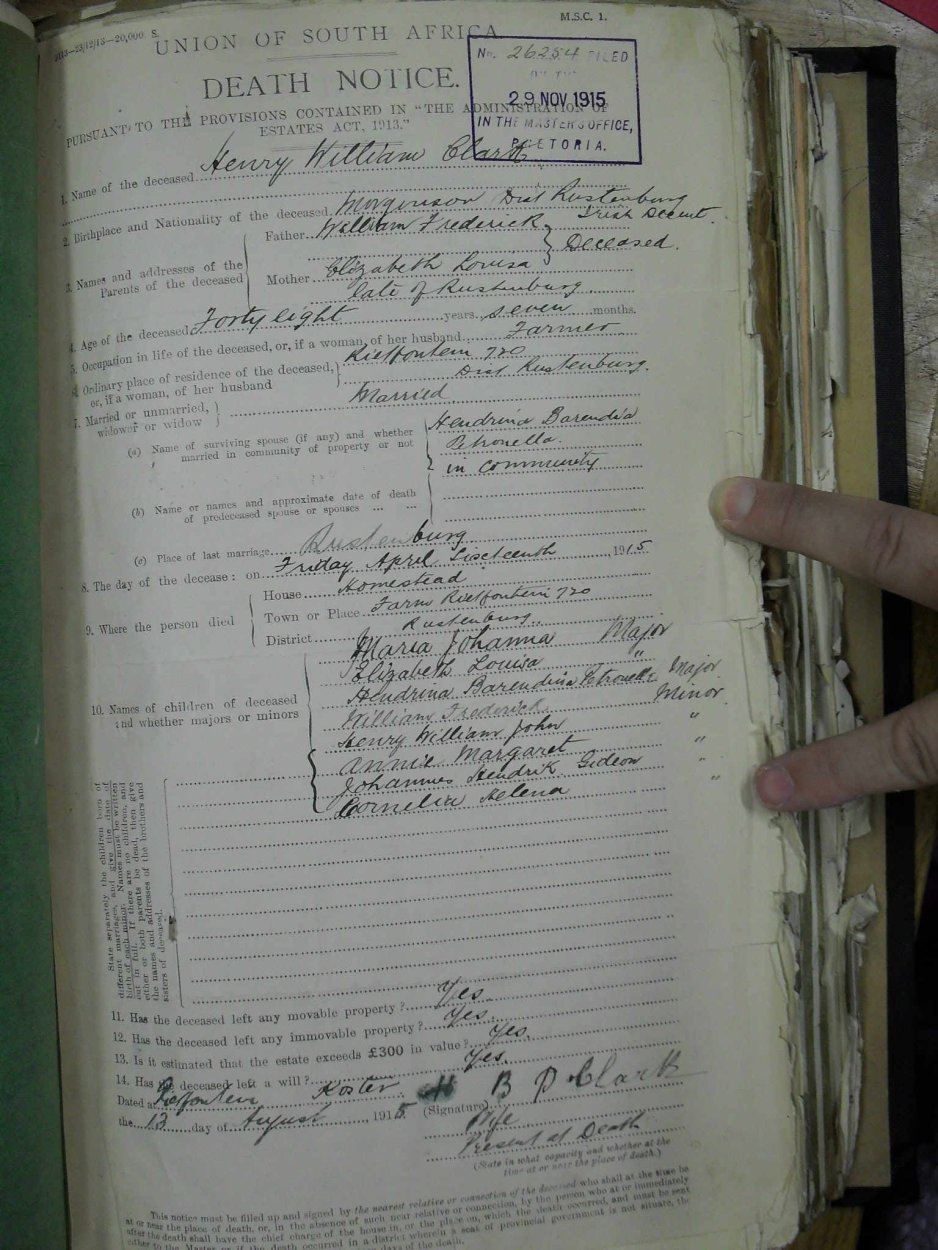 M.S.C. 1.
UNION OF SOUTH AFRICA
DEATH NOTICE.
No. 26254 FILED
29 NOV 1915
IN THE MASTER'S OFFICE,
PRETORIA.
PURSUANT TO THE PROVISIONS CONTAINED IN "THE ADMINISTRATION OF
ESTATES ACT, 1913."
1. Name of the deceased Henry William Clark
2. Birthplace and Nationality of the deceased Dist Rustenburg
Irish Decent.
3. Names and addresses of the Parents of the deceased
Father William Frederick
Deceased.
Mother Elizabeth Lovisa
late of Rustenburg.
4. Age of the deceased Forty eight years seven months.
5. Occupation in life of the deceased, or, if a woman, of her husband Farmer
6. Ordinary place of residence of the deceased, or, if a woman, of her husband Rietfontein 720
Dist Rustenburg.
7. Married or unmarried, widower or widow Married
(a) Name of surviving spouse (if any) and whether married in community of property or not
Hendrina Barendia
Petronella.
in community
(b) Name or names and approximate date of death
of predeceased spouse or spouses ... ...
(c) Place of last marriage Rustenburg
8. The day of the decease: on Friday April Sixteenth 1915
9. Where the person died
House Homestead
Town or Place Farm Rietfontein 720
District Rustenburg.
10. Names of children of deceased and whether majors or minors
Maria Johanna Major
Elizabeth Louisa "
Hendrina Barendina Petronella Major
William Frederick Minor
Henry William John "
Annie Margaret "
Johannes Hendrik Gideon "
Cornelia Helena "
State separately the children born of
different marriages, and give the date of
birth of each minor. Names must be written
out in full. If there are no children, and
either or both parents be dead, then give
the names and addresses of the brothers and
sisters of deceased.
11. Has the deceased left any movable property? Yes
12. Has the deceased left any immovable property? Yes.
13. Is it estimated that the estate exceeds £300 in value? Yes.
14. Has the deceased left a will? Yes.
Dated at Rietfontein Koster
the 13 day of August 1915
(Signature) H B P Clark
Wife
Present at Death
(State in what capacity and whether at the
time at or near the place of death.)
This notice must be filled up and signed by the nearest relative or connection of the deceased who shall at the time be
at or near the place of death, or, in the absence of such near relative or connection, by the person who at or immediately
after the death shall have the chief charge of the house in, or the place on, which, the death occurred, and must be sent
either to the Master or if the death occurred in a district wherein a seat of provincial government is not situate, the